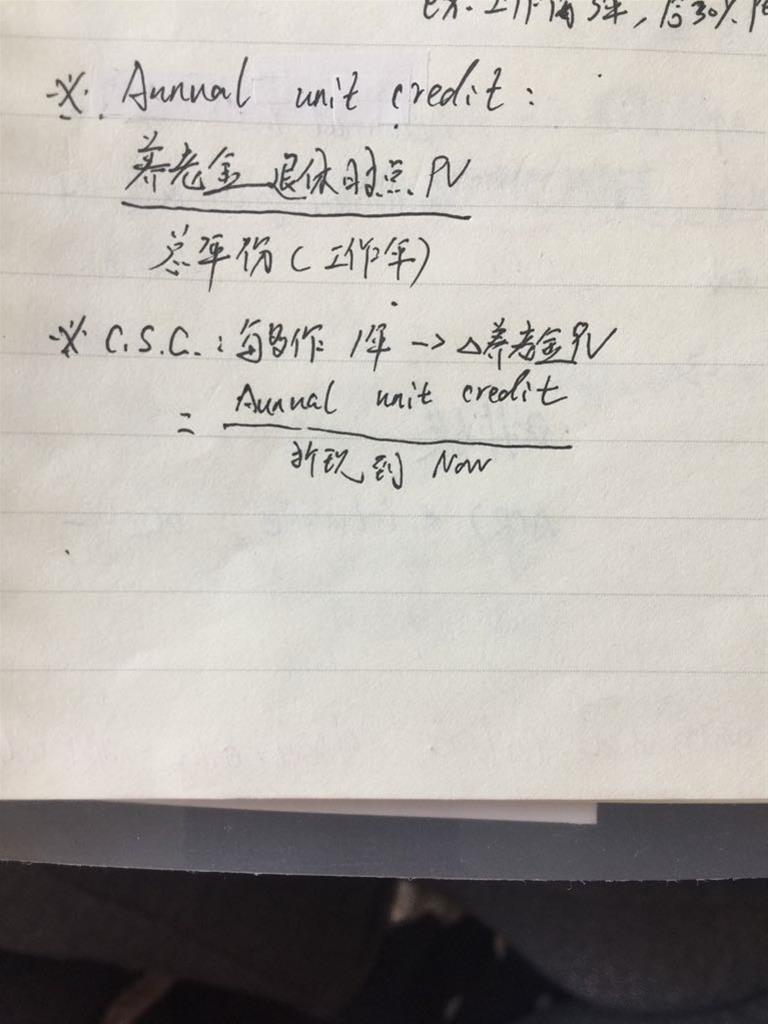 ex. 工作满5年, 后30%
※. Annual unit credit :
养老金 退休时点 PV
总年份 (工作年)
※ C.S.C. : 每多作 1年 -> △养老金PV
= Annual unit credit
折现到 Now